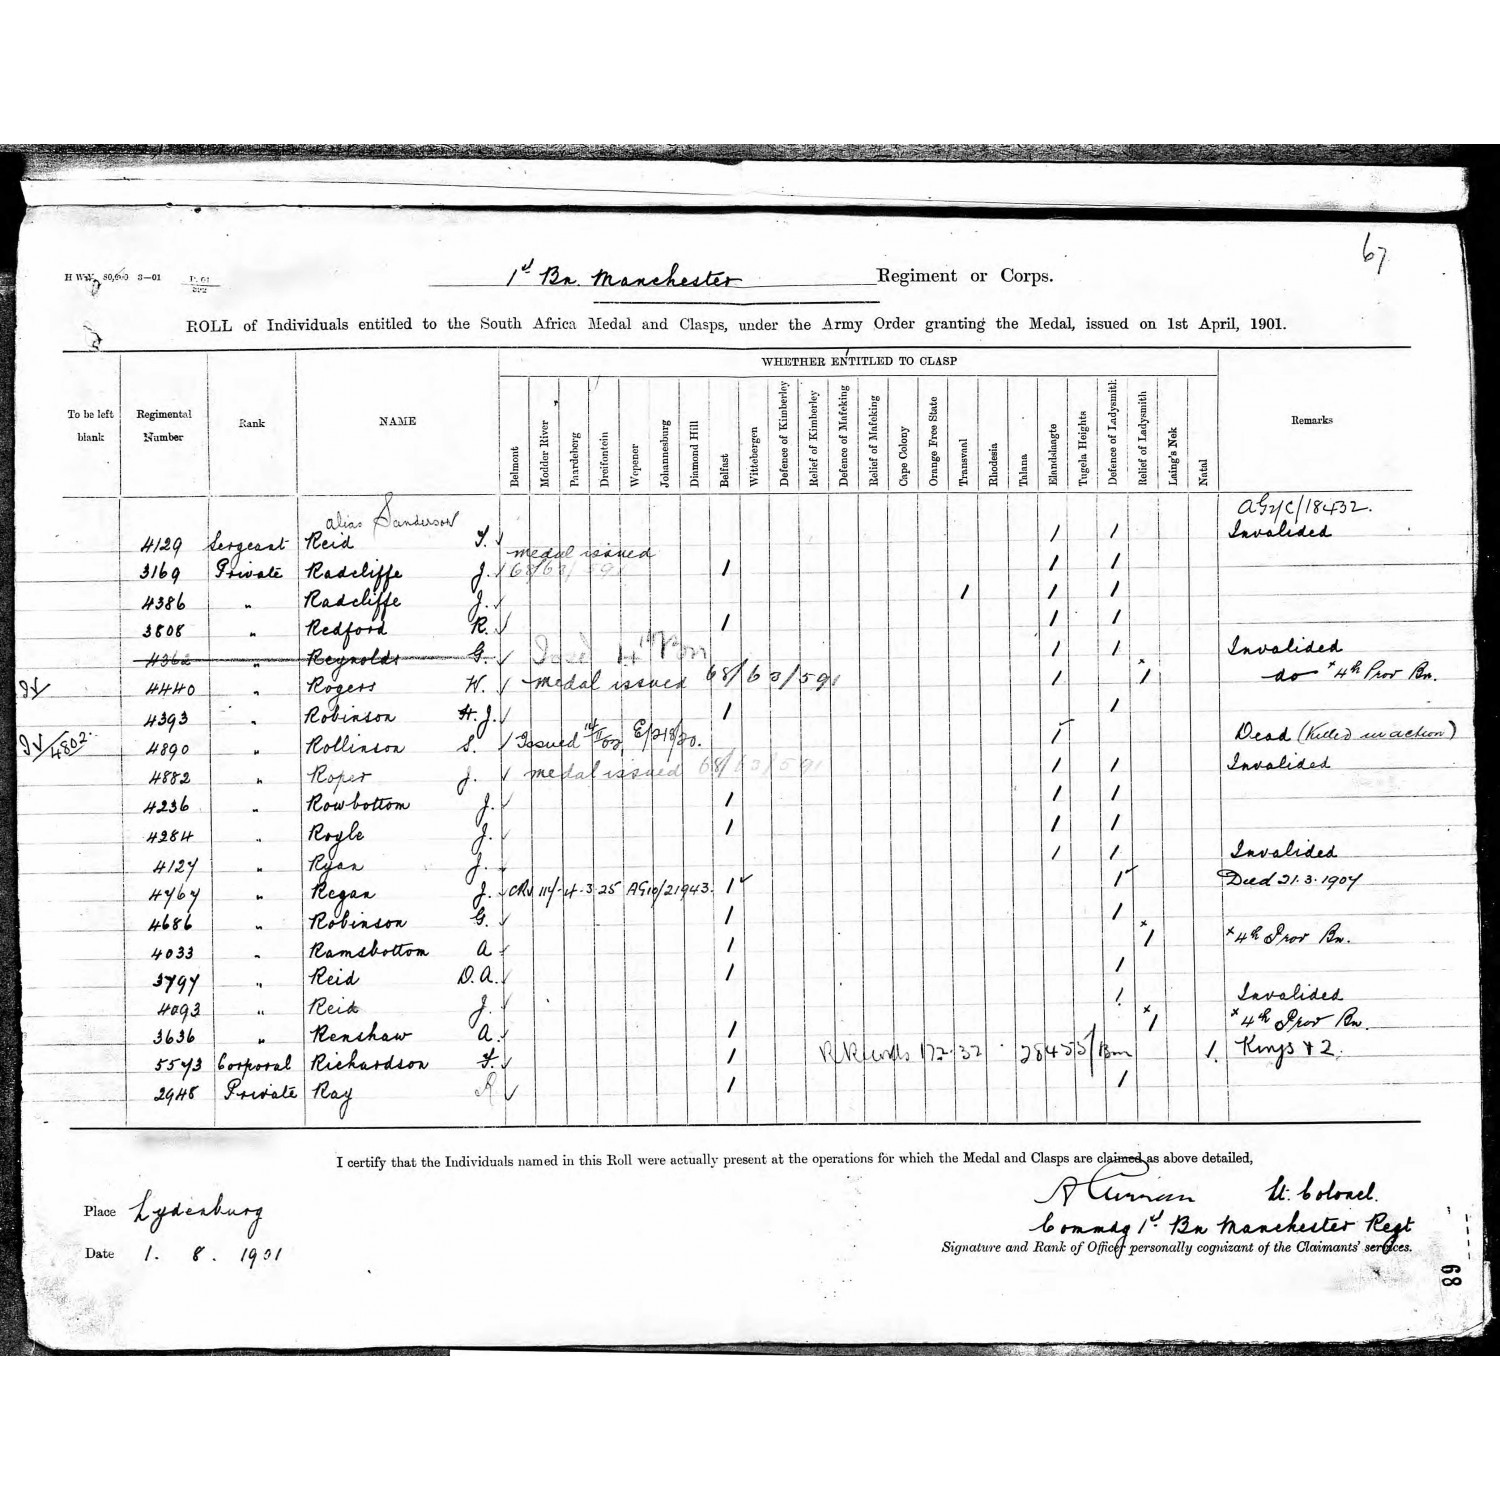 67
H W&V 80,000 3—01
1st Bn. Manchester Regiment or Corps.
ROLL of Individuals entitled to the South Africa Medal and Clasps, under the Army Order granting the Medal, issued on 1st April, 1901.
WHETHER ENTITLED TO CLASP
To be left blank Regimental Number Rank NAME Belmont Modder River Paardeberg Dreifontein Wepener Johannesburg Diamond Hill Belfast Wittebergen Defence of Kimberley Relief of Kimberley Defence of Mafeking Relief of Mafeking Cape Colony Orange Free State Transvaal Rhodesia Talana Elandslaagte Tugela Heights Defence of Ladysmith Relief of Ladysmith Laing's Nek Natal Remarks
alias Sanderson
4129 Sergeant Reid / / Invalided
medal issued
3169 Private Radcliffe J. 68/63/591 / / /
4386 " Radcliffe J. / / /
3808 " Redford R. / / /
4362 " Reynolds G. 4th Bn / / Invalided
4440 " Rogers W. medal issued 68/63/591 / x/ do x 4th Prov Bn.
4393 " Robinson H. J. / /
IV/4802. 4890 " Rollinson S. Issued E/218/20. / Dead (Killed in action)
4882 " Roper J. medal issued 68/63/591 / / Invalided
4236 " Rowbottom J. / / /
4284 " Royle J. / / /
4127 " Ryan J. / / Invalided
4767 " Regan J. 117 4-3-25 AG10/21943. / / Died 21.3.1907
4686 " Robinson G. / /
4033 " Ramsbottom A / x/ x 4th Prov Bn.
3797 " Reid D.A. / /
4093 " Reid J. / Invalided
3636 " Renshaw A. / x/ x 4th Prov Bn.
5573 Corporal Richardson / 172.32 28455/Bm / Kings & 2.
2948 Private Ray / /
I certify that the Individuals named in this Roll were actually present at the operations for which the Medal and Clasps are claimed as above detailed,
A Curran Lt. Colonel.
Place Lydenburg
Commdg 1st Bn Manchester Regt
Date 1. 8. 1901
Signature and Rank of Officer personally cognizant of the Claimants' services.
68